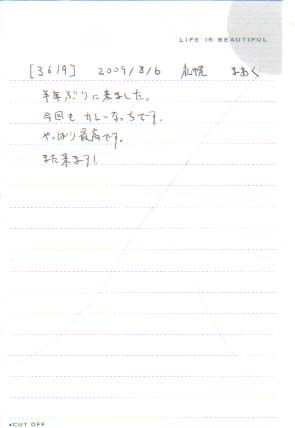 LIFE IS BEAUTIFUL
[3619] 2009/8/6 札幌 まあく
半年ぶりに来ました。
今回も カレーなっちです。
やっぱり最高です。
また来ます!
CUT OFF